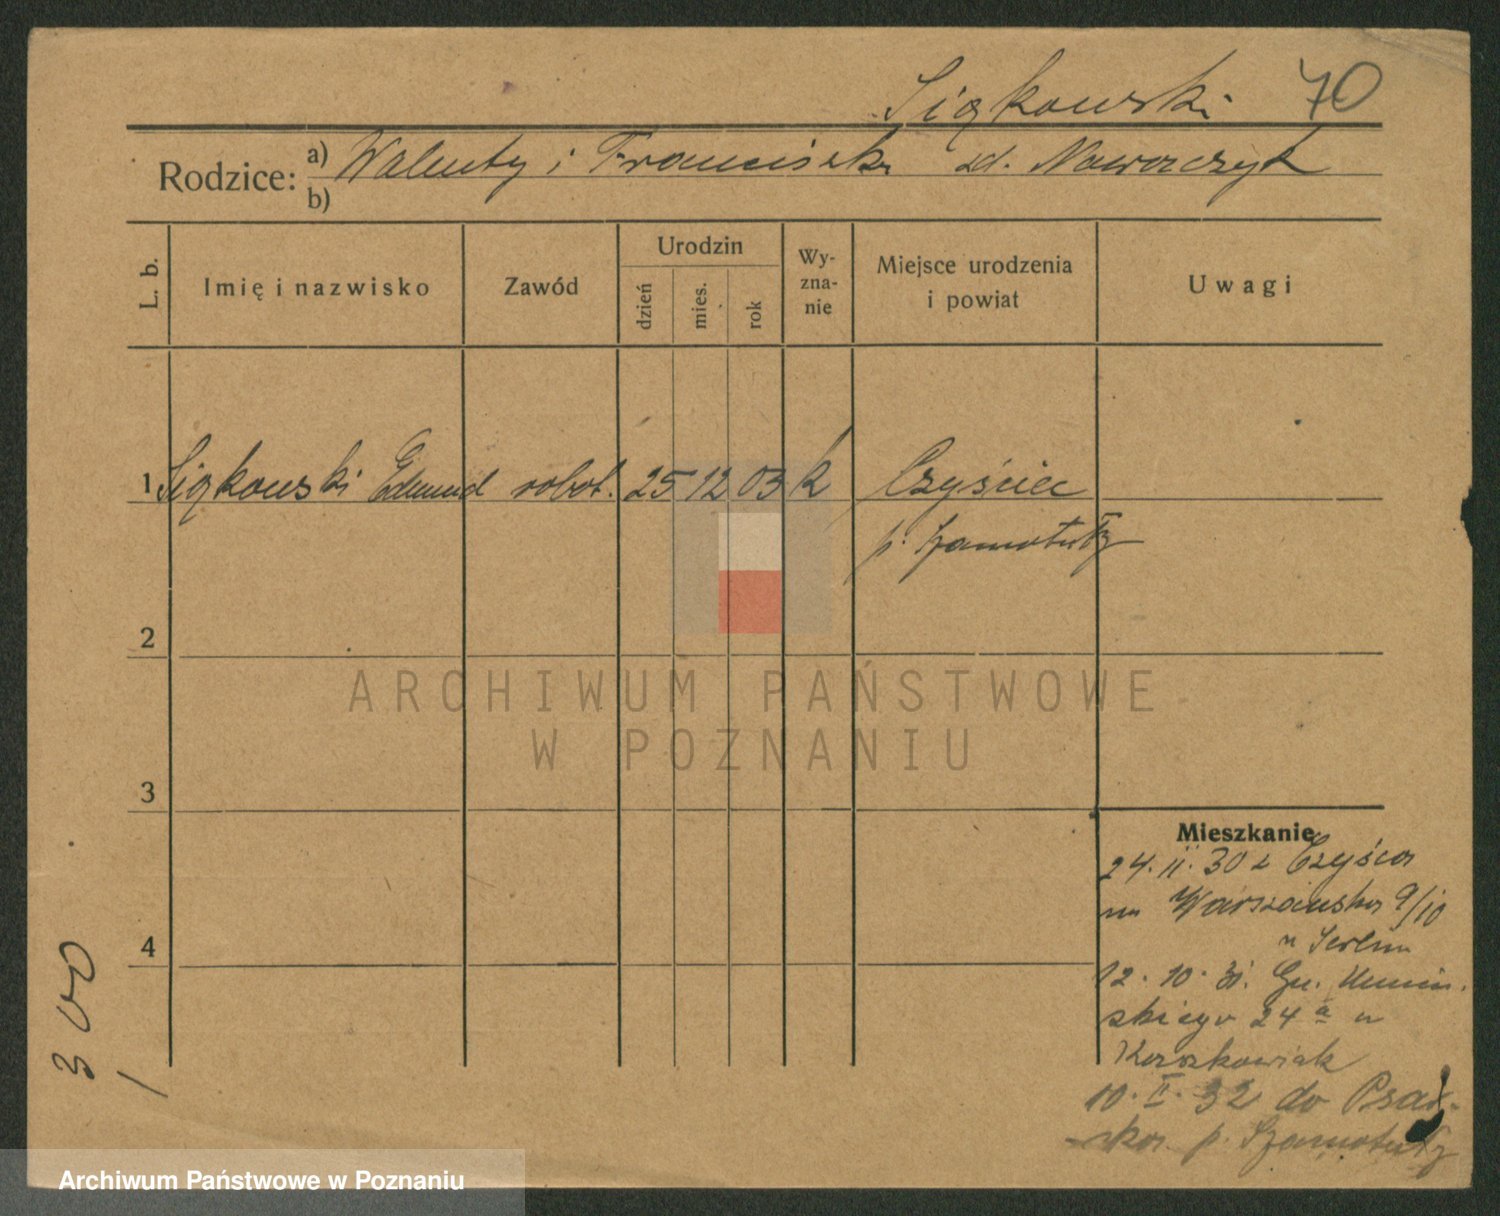 Siąkowski 70
Rodzice: a) Walenty i Franciszka zd. Nawrczyk
b)
L. b. Imię i nazwisko Zawód Urodzin dzień mies. rok Wyznanie Miejsce urodzenia i powiat Uwagi
1 Siąkowski Edmund robot. 25 12 03 k Czyściec
p. Szamotuły
2
ARCHIWUM PAŃSTWOWE
W POZNANIU
3
Mieszkanie
24. II. 30 z Czyśca
na Warszawska 9/10
u
12. 10. 31. Gn.
skiego 24 a u
Koszkowiak
10. II. 32 do Psar-
ska p. Szamotuły
4
300
Archiwum Państwowe w Poznaniu